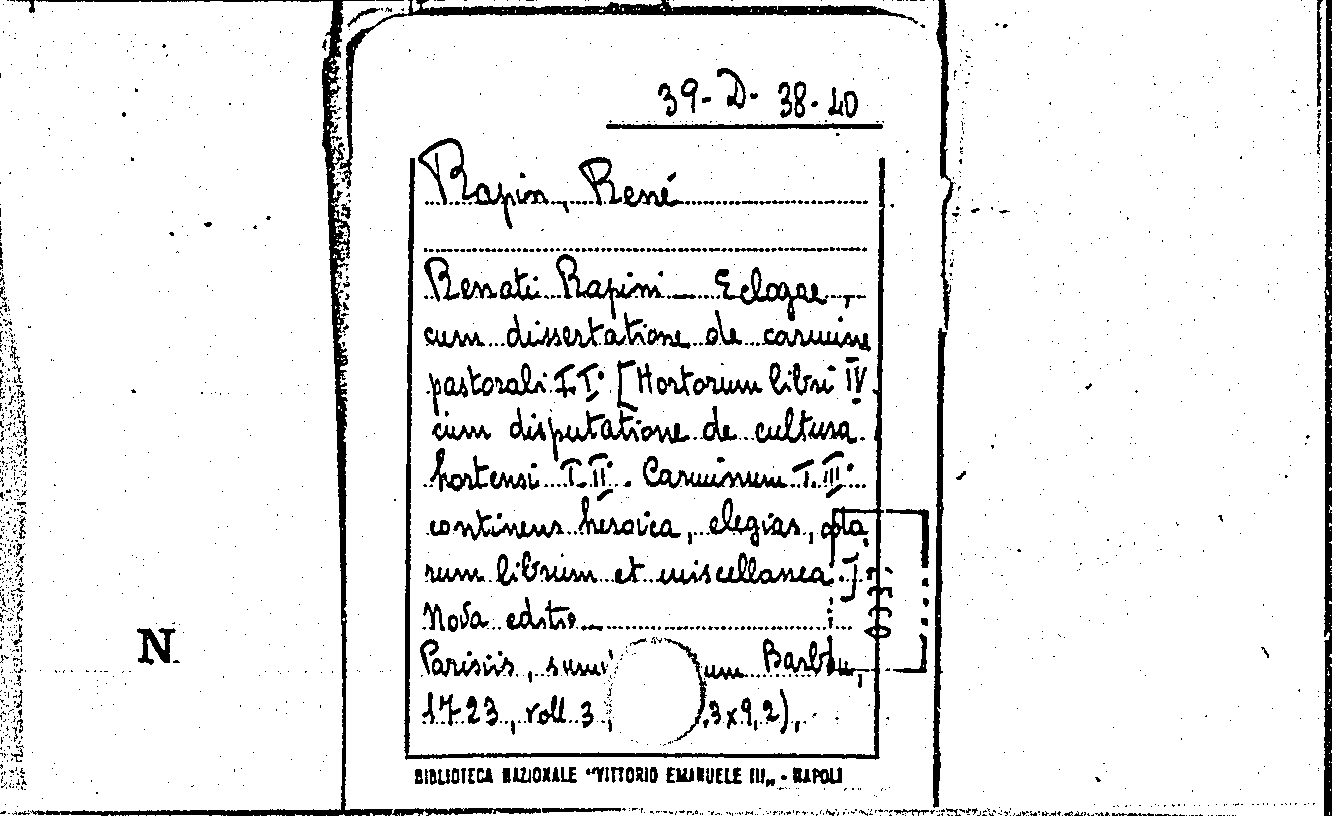 39-D-38-40
Rapin, René
Renati Rapini - Eclogae,
cum dissertatione de carmine
pastorali T.I. [Hortorum libri IV.
cum disputatione de cultura
hortensi T.II. Carminum T.III.
continens heroica, elegias, oda
rum librum et miscellanea.]
Nova editio
Parisiis, Barbou,
1723, voll. 3 ,3x9,2),
N
BIBLIOTECA NAZIONALE "VITTORIO EMANUELE III" - NAPOLI